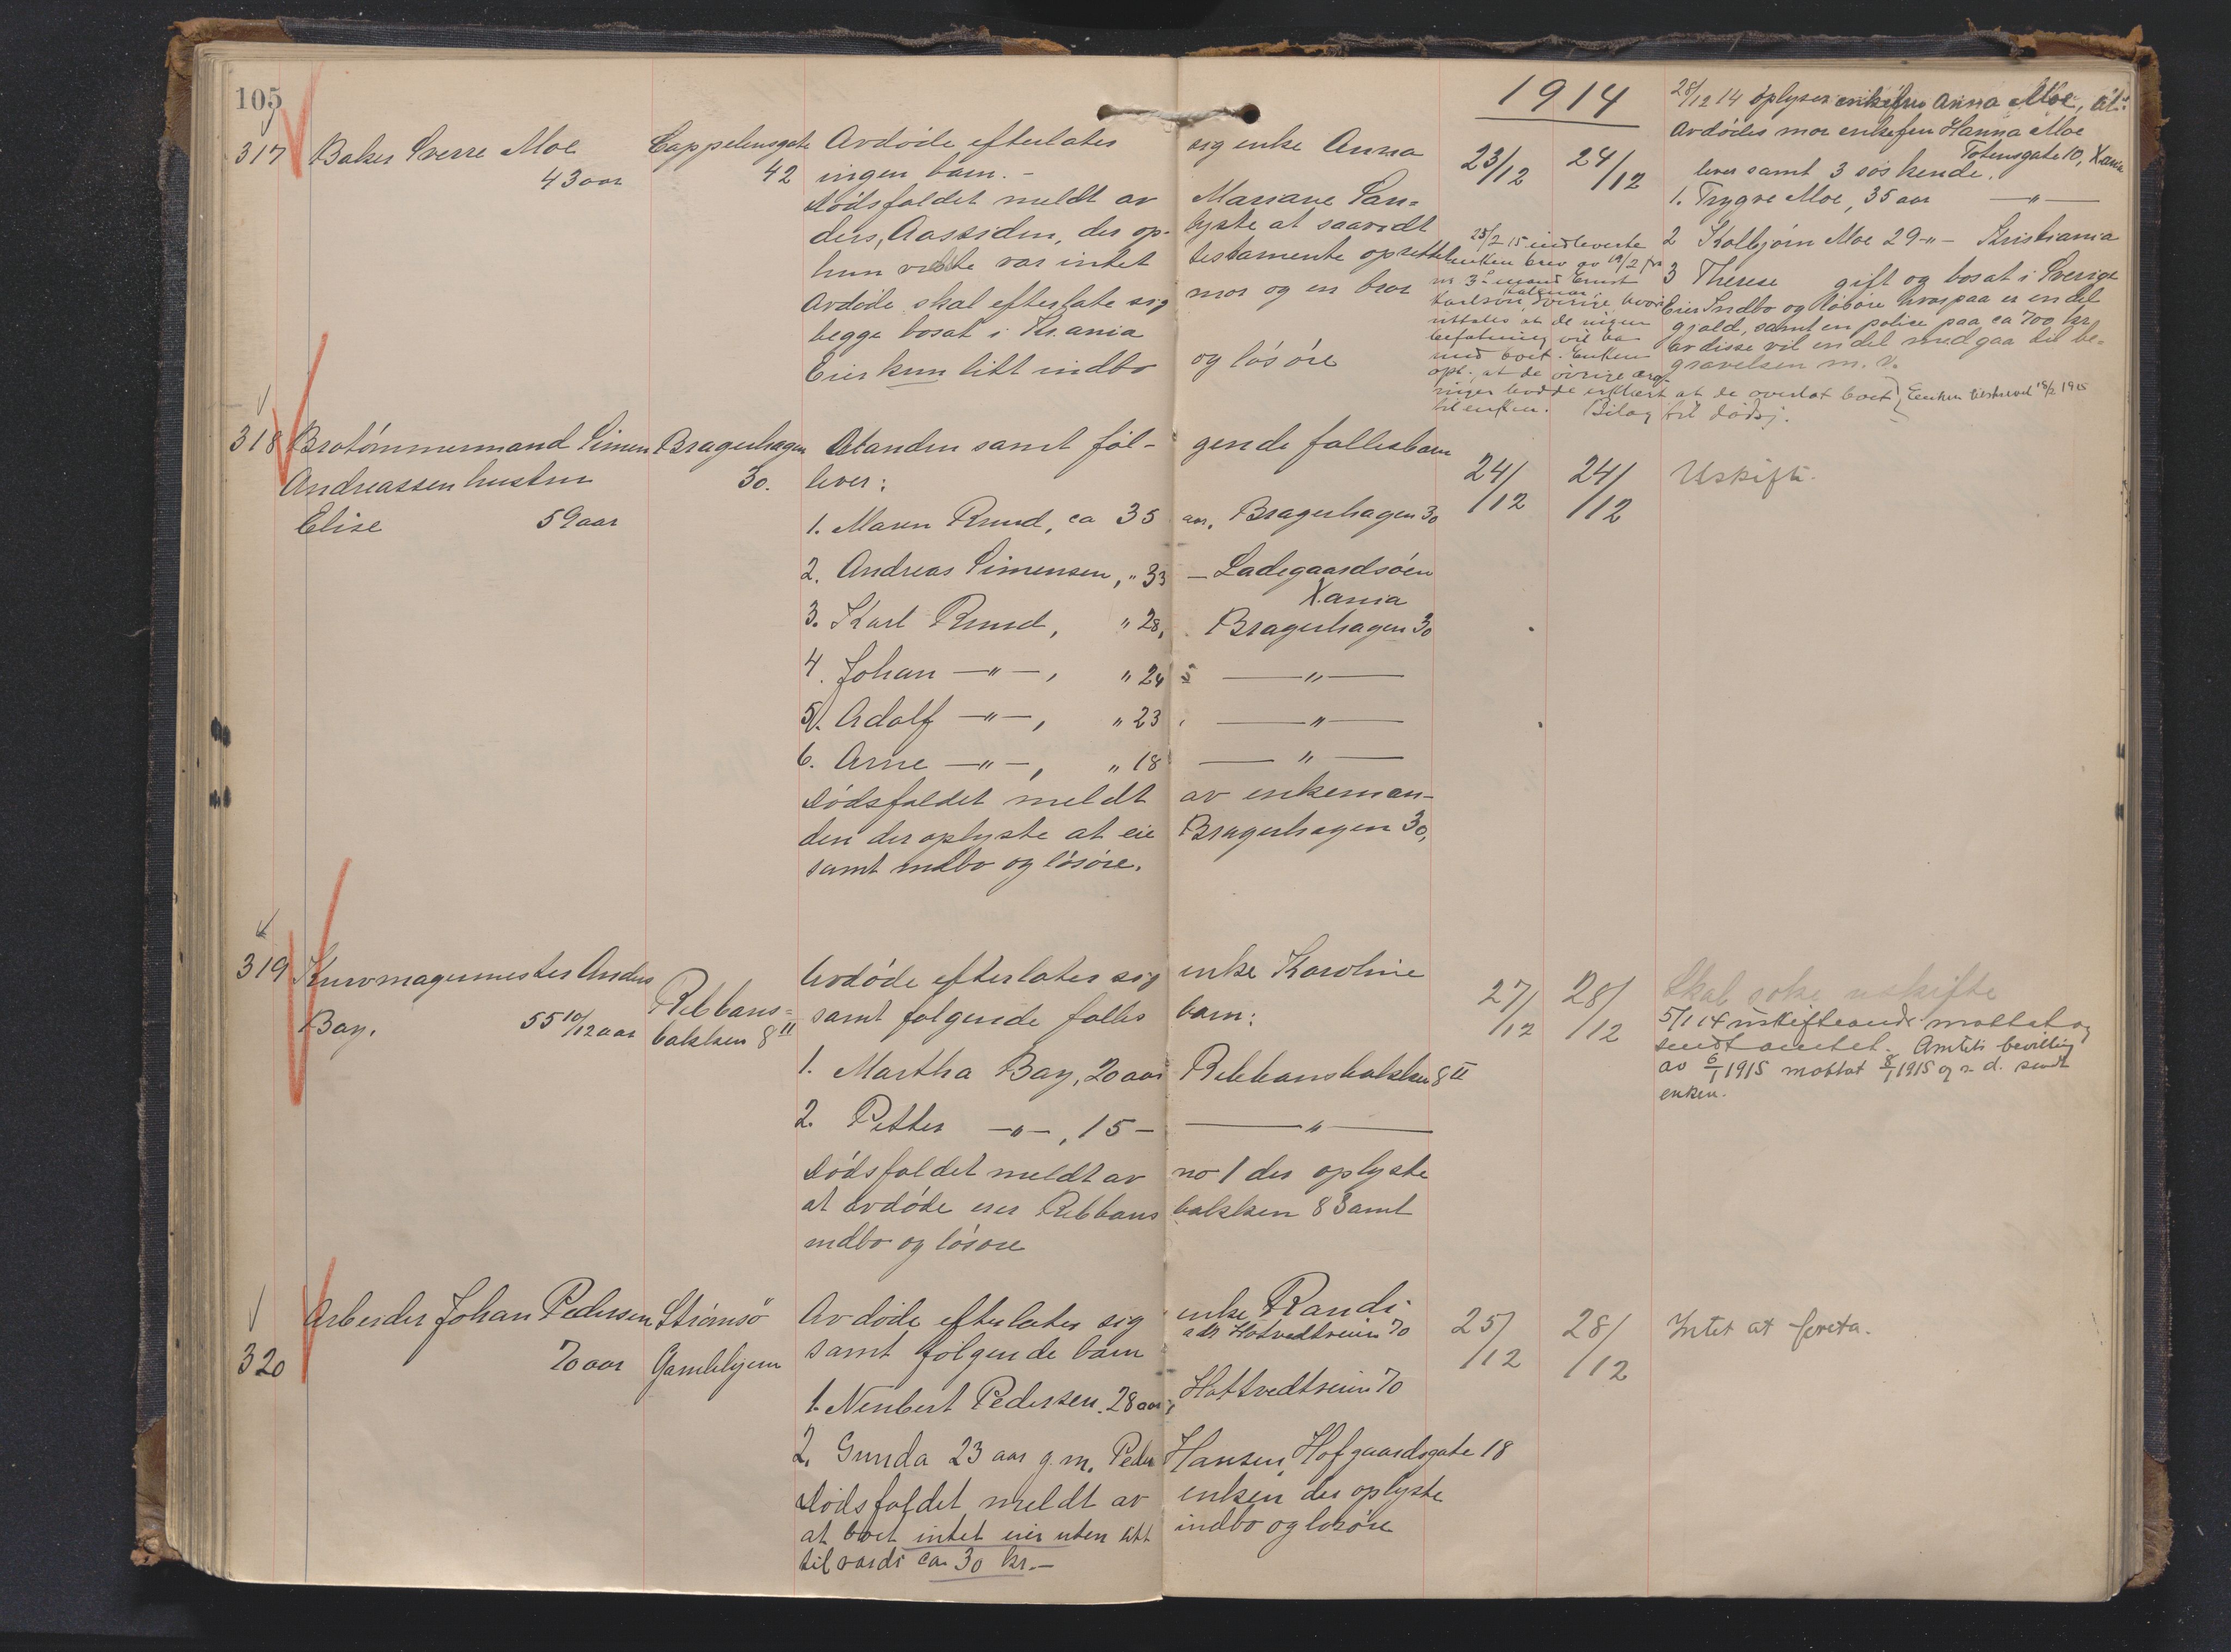 105
1914
317 Baker Sverre Moe
43 aar
Cappelensgate
42
Avdøde efterlater sig enke Anna
ingen barn. -
Dødsfaldet meldt av Mariane San=
ders, Aassiden, der op- lyste at saavidt
hun viste var intet testamente oprettet
Avdøde skal efterlate sig mor og en bror
begge bosat i Kr.ania
Eier kun litt indbo og løsøre
23/12 24/12
25/2 15 indleverte
enken brev av 19/2 fra
nr 3's mand Ernst
Karlson Kalmar Sverige hvori
uttales at de ingen
befatning vil ha
med boet. Enken
opl. at de øvrige arv
inger hadde erklært at de overlot boet
til enken. Bilag til dødsj.
28/12 14 oplyser enkefru Anna Moe, at:
Avdødes mor enkefru Hanna Moe
Totensgate 10, X.ania
lever samt 3 søskende.
1. Trygve Moe, 35 aar —"—
2 Kolbjørn Moe 29 -"- Kristiania
3 Therese gift og bosat i Sverige
Eier Indbo og løsøre hvorpaa er en del
gjæld, samt en police paa ca 700 kr
av disse vil en del medgaa til be=
gravelsen m. v.
Enken 1915
318 Brotømmermand Simen
Andreassen hustru
Elise 59 aar
Bragerhagen
30.
Manden samt føl- gende fællesbarn
lever:
1. Maren Ruud, ca 35 aar, Bragerhagen 30
2. Andreas Simensen, " 33 — Ladegaardsøen
X.ania
3. Karl Ruud, " 28, Bragerhagen 30
4. Johan —"—, " 24 —"—
5. Adolf —"—, " 23 —"—
6. Arne —"—, " 18 —"—
Dødsfaldet meldt av enkeman-
den der oplyste at eie Bragerhagen 30,
samt indbo og løsøre.
24/12 24/12
Uskifte.
319 Kurvmagermester Anders
Bay. 55 10/12 aar
Rebbans=
bakken 8 II
Avdøde efterlater sig enke Karoline
samt følgende fælles barn:
1. Martha Bay, 20 aar Rebbansbakken 8 II
2. Petter —"—, 15 — —"—
Dødsfaldet meldt av no 1 der oplyste
at avdøde eier Rebbans bakken 8 samt
indbo og løsøre
27/12 28/12
Skal søke uskifte
5/1 14 uskifteands. mottat og
sendt amtet. Amtets bevilling
av 6/1 1915 mottat 8/1 1915 og s. d. sendt
enken.
320 Arbeider Johan Pedersen
70 aar
Strømsö
Gamlehjem
Avdøde efterlater sig enke Randi
adr Hotvedtveien 70
samt følgende barn
1. Nenbert Pedersen, 28 aar, Hottvedtveien 70
2. Gunda 23 aar g. m. Peder Hansen, Hofgaardsgate 18
Dødsfaldet meldt av enken der oplyste
at boet intet eier uten litt indbo og løsøre
til værdi ca 30 kr. —
25/12 28/12
Intet at foreta.